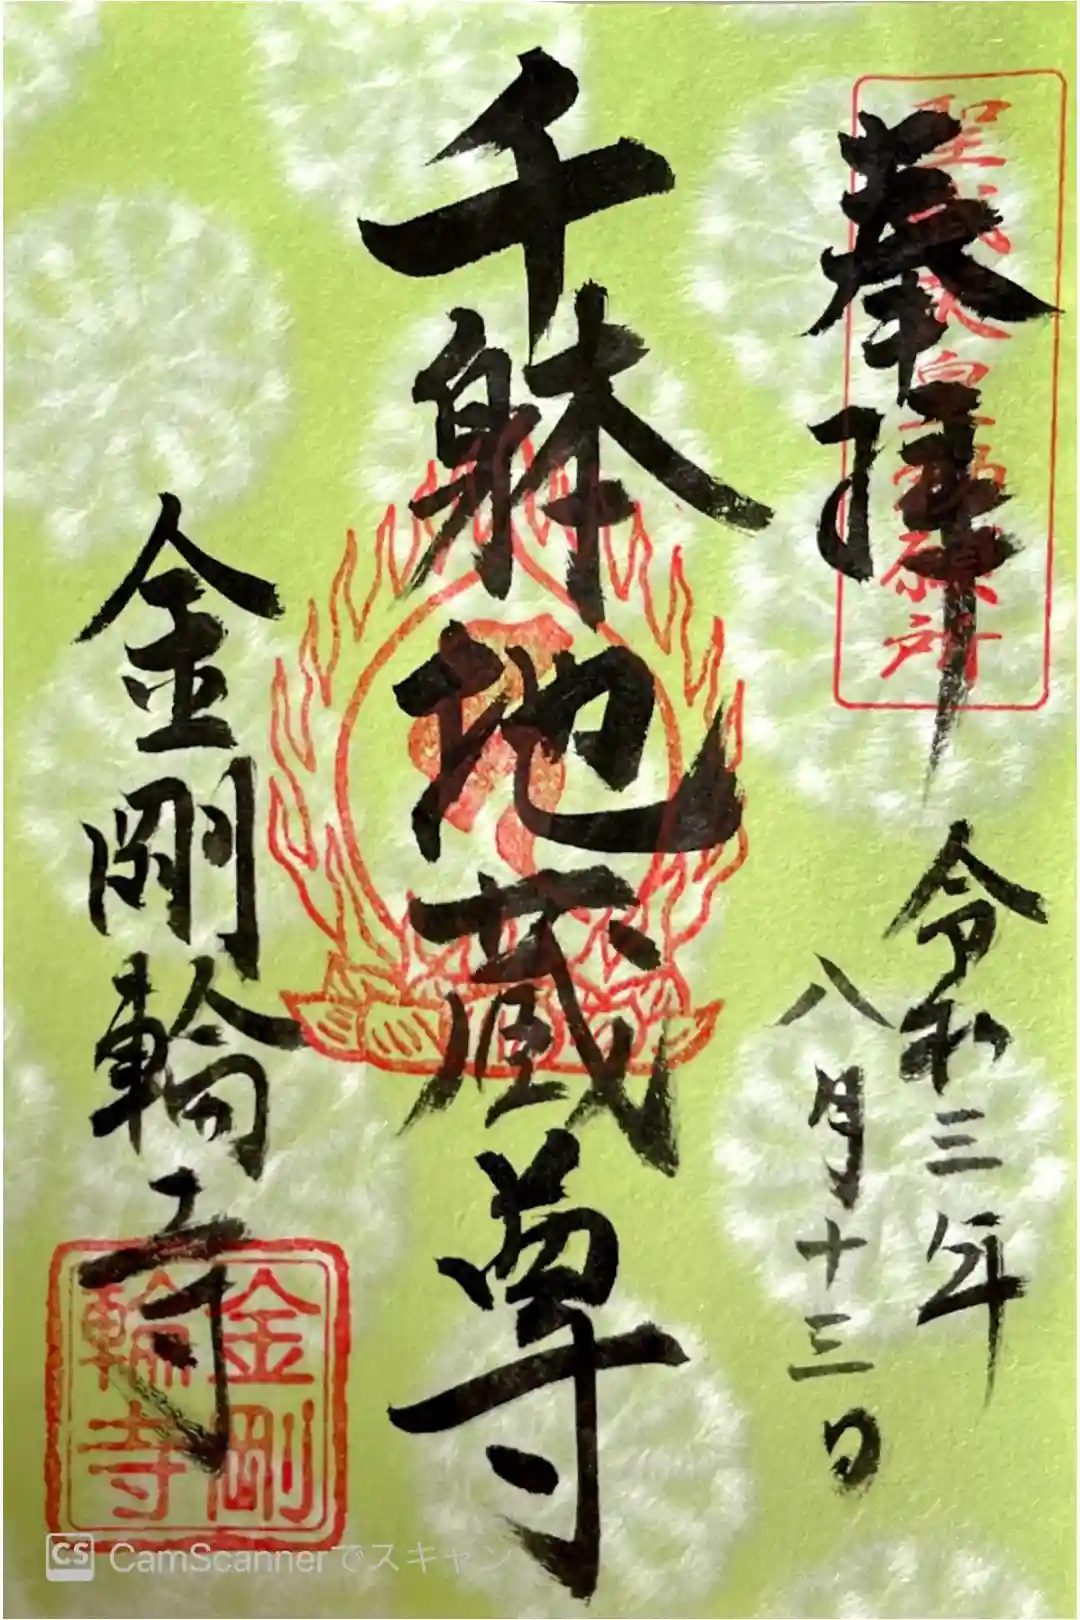 奉拝
聖武天皇勅願所
令和三年
八月十三日
千躰地蔵尊
金剛輪寺
金剛
輪寺
CS CamScannerでスキャン